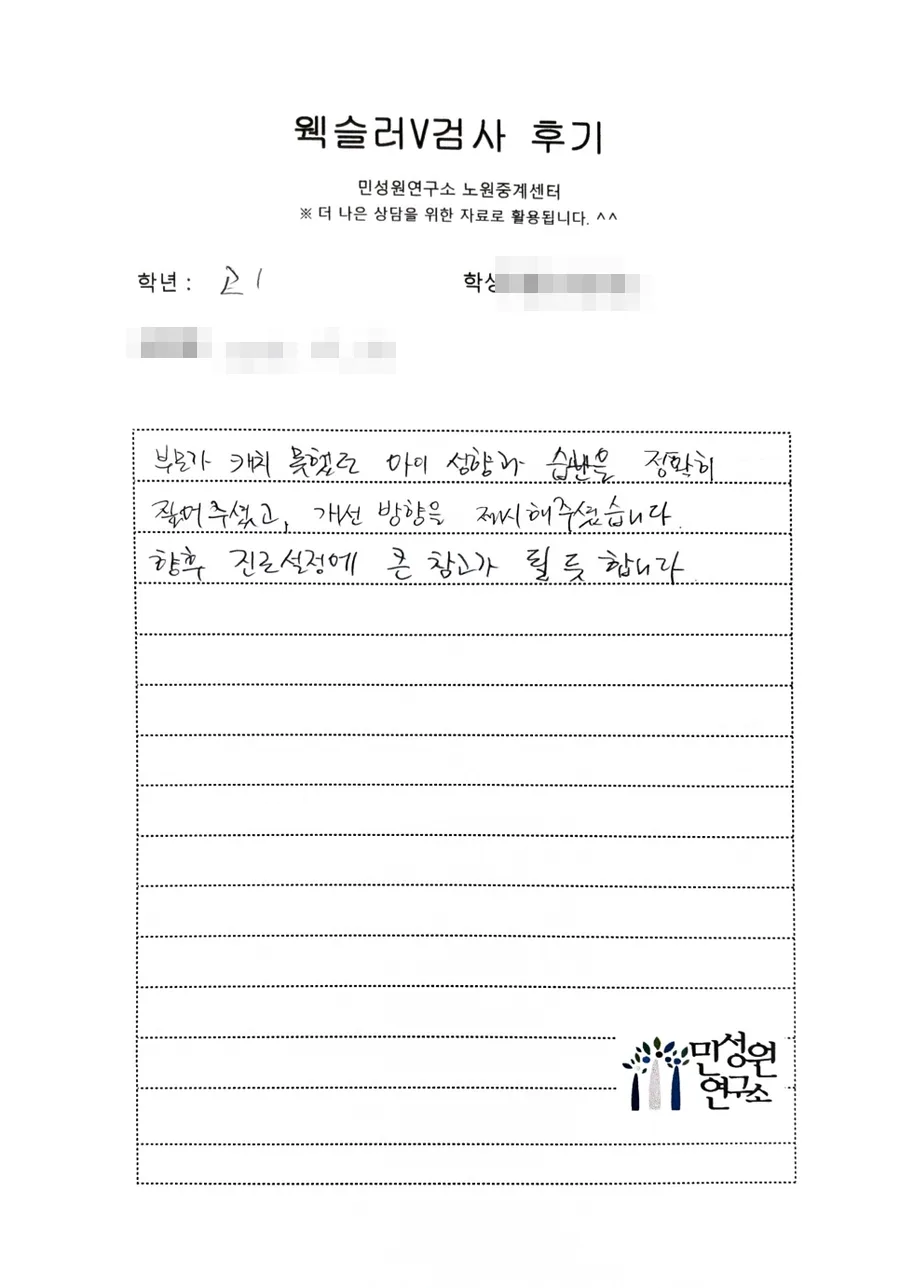 웩슬러V검사 후기
민성원연구소 노원중계센터
※ 더 나은 상담을 위한 자료로 활용됩니다. ^^
학년 : 고1
부모가 캐치 못했던 아이 성향과 습관을 정확히
짚어주셨고, 개선 방향을 제시해주셨습니다.
향후 진로설정에 큰 참고가 될 듯 합니다.
민성원
연구소